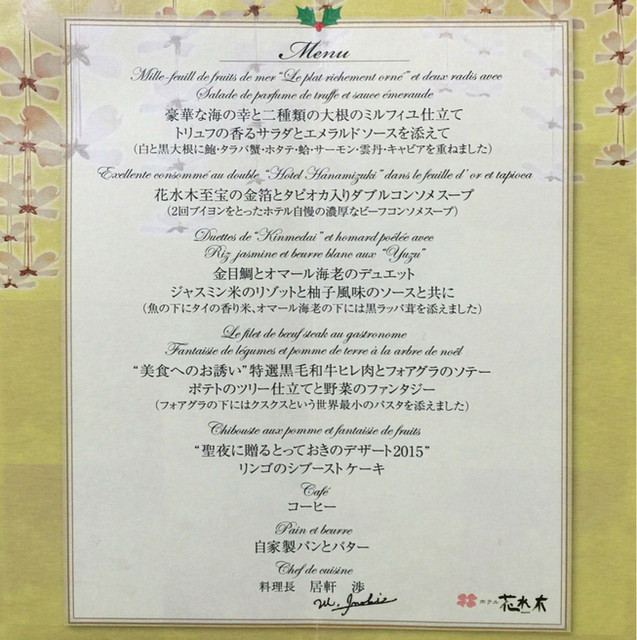 Menu
Mille-feuill de fruits de mer "Le plat richement orné" et deux radis avec
Salade de parfume de truffe et sauce émeraude
豪華な海の幸と二種類の大根のミルフィユ仕立て
トリュフの香るサラダとエメラルドソースを添えて
（白と黒大根に鮑・タラバ蟹・ホタテ・蛤・サーモン・雲丹・キャビアを重ねました）
Exellente consommé au double "Hotel Hanamizuki" dans le feuille d' or et tapioca
花水木至宝の金箔とタピオカ入りダブルコンソメスープ
（2回ブイヨンをとったホテル自慢の濃厚なビーフコンソメスープ）
Duettes de "Kinmedai" et homard poêlée avec
Riz jasmine et beurre blanc aux "Yuzu"
金目鯛とオマール海老のデュエット
ジャスミン米のリゾットと柚子風味のソースと共に
（魚の下にタイの香り米、オマール海老の下には黒ラッパ茸を添えました）
Le filet de bœuf steak au gastronome
Fantaisie de légumes et pomme de terre à la arbre de noël
"美食へのお誘い"特選黒毛和牛ヒレ肉とフォアグラのソテー
ポテトのツリー仕立てと野菜のファンタジー
（フォアグラの下にはクスクスという世界最小のパスタを添えました）
Chibouste aux pomme et fantaisie de fruits
"聖夜に贈るとっておきのデザート2015"
リンゴのシブーストケーキ
Café
コーヒー
Pain et beurre
自家製パンとバター
Chef de cuisine
料理長 居軒 渉
ホテル 花水木